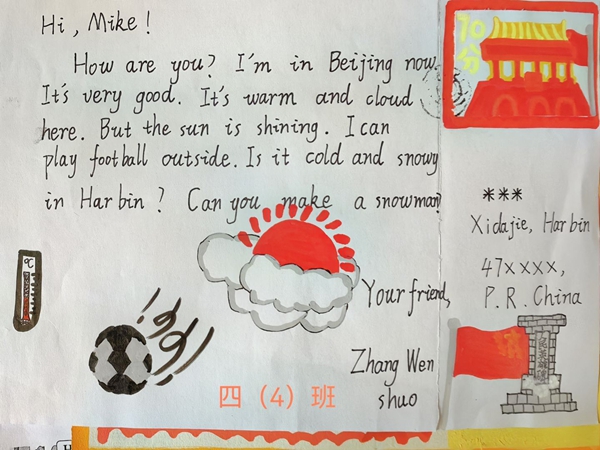 Hi, Mike!
How are you? I'm in Beijing now.
It's very good. It's warm and cloud
here. But the sun is shining. I can
play football outside. Is it cold and snowy
in Harbin? Can you make a snowman?
Your friend,
Zhang Wen
shuo
四（4）班
70
分
***
Xidajie, Harbin
47xxxx,
P.R.China
℃